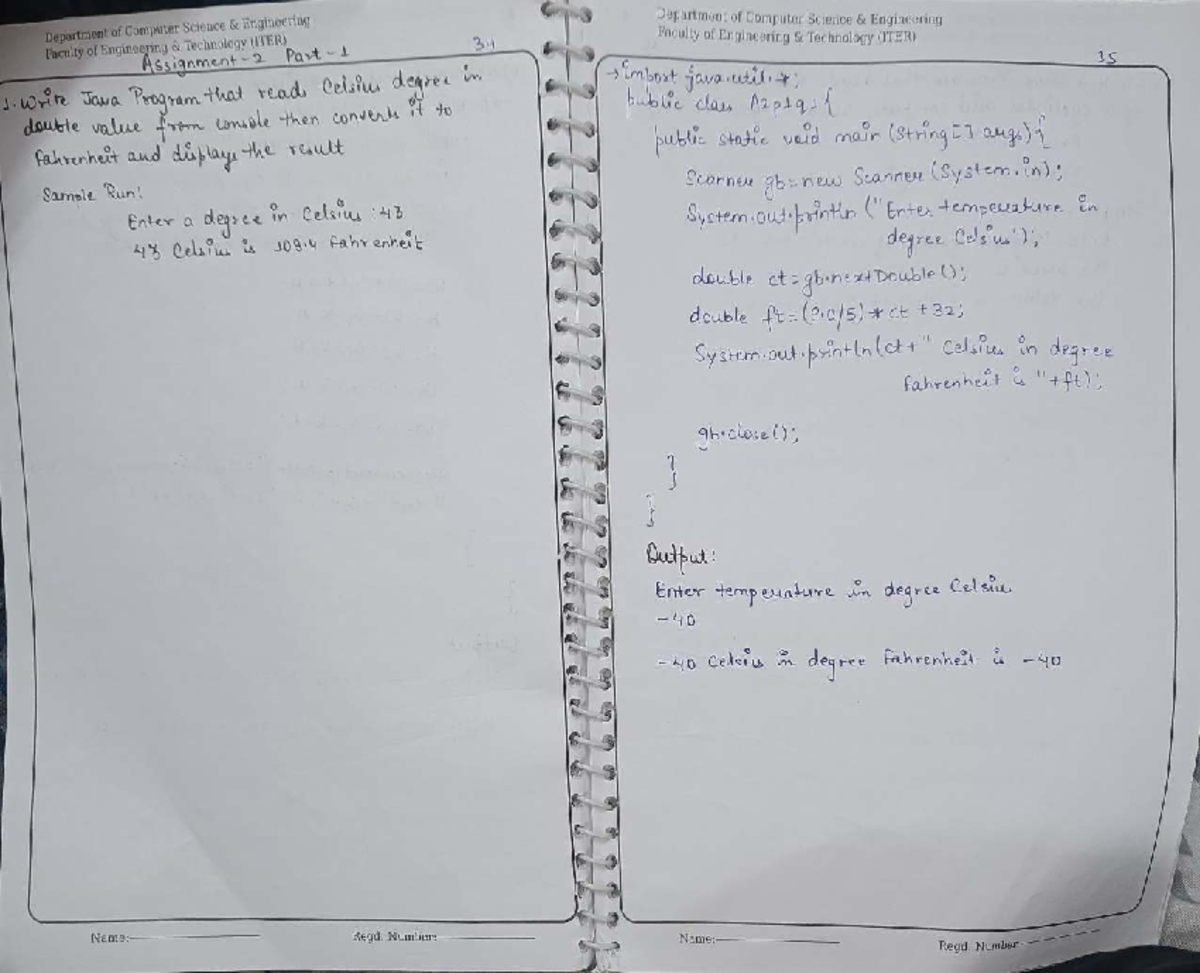 Department of Computer Science & Engineering
Faculty of Engineering & Technology (ITER)
34
Assignment-2 Part-1
1. Write Java Program that reads Celsius degree in
double value from console then converts it to
fahrenheit and displays the result
Sample Run:
Enter a degree in Celsius : 43
43 Celsius is 109.4 fahrenheit
Name:
Regd. Number:
Department of Computer Science & Engineering
Faculty of Engineering & Technology (ITER)
35
→ import java.util.*;
public class A2p1q1 {
public static void main (String[] args) {
Scanner gb=new Scanner (System.in);
System.out.println ("Enter temperature in
degree Celsius");
double ct=gb.nextDouble();
double ft=(9.0/5)*ct+32;
System.out.println(ct+" Celsius in degree
fahrenheit is "+ft);
gb.close();
}
}
Output:
Enter temperature in degree Celsius
-40
-40 Celsius in degree fahrenheit is -40
Name:
Regd. Number